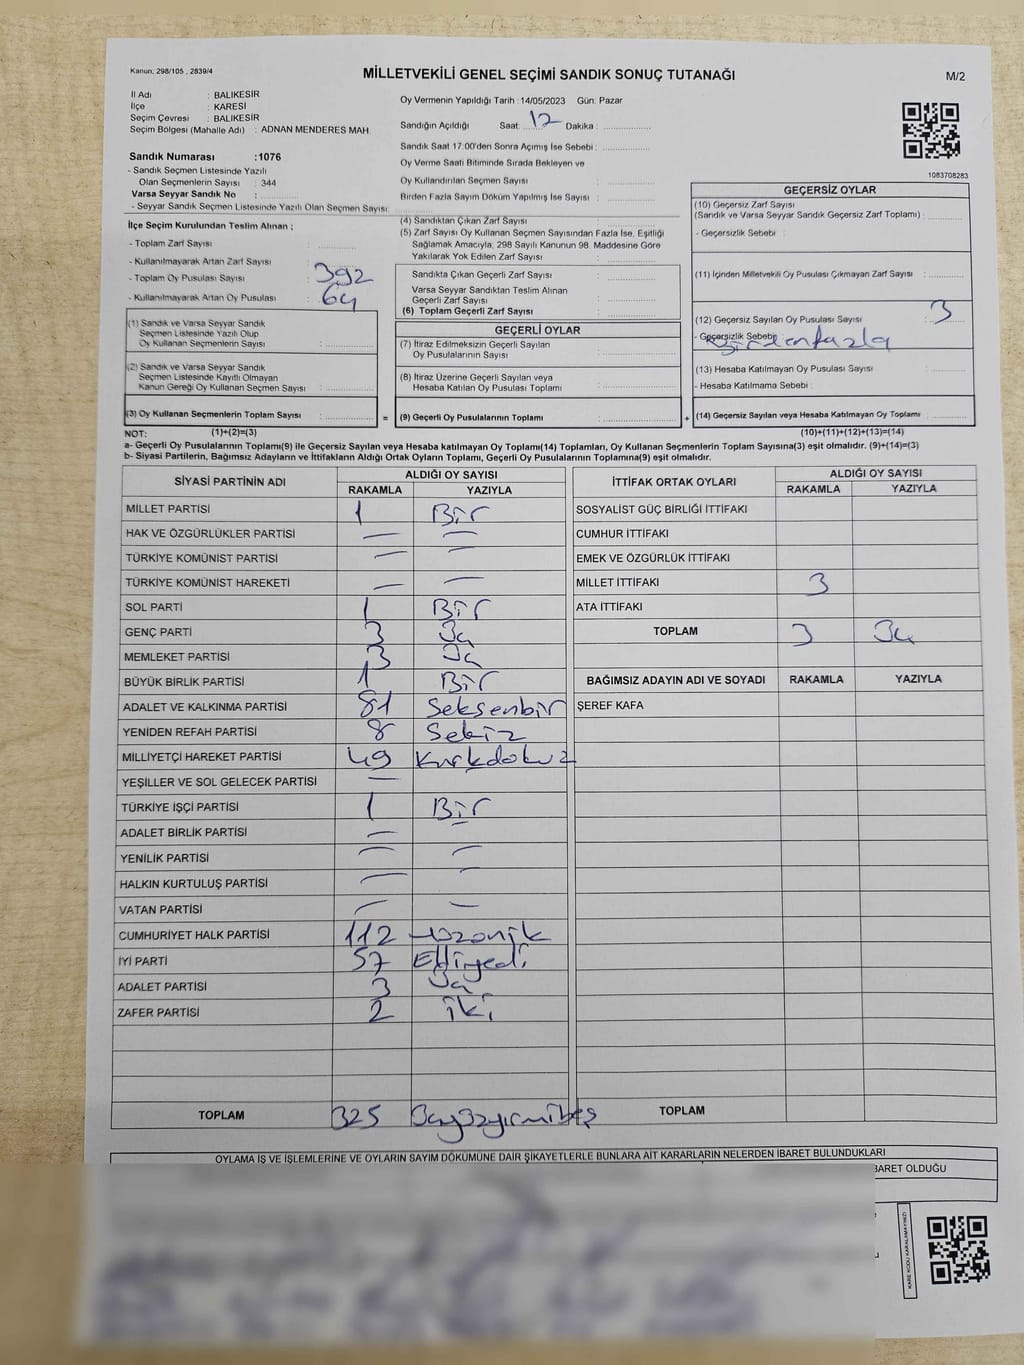 Kanun; 298/105 , 2839/4
MİLLETVEKİLİ GENEL SEÇİMİ SANDIK SONUÇ TUTANAĞI
M/2
İl Adı : BALIKESİR
İlçe : KARESİ
Seçim Çevresi : BALIKESİR
Seçim Bölgesi (Mahalle Adı) : ADNAN MENDERES MAH.
Sandık Numarası :1076
- Sandık Seçmen Listesinde Yazılı
Olan Seçmenlerin Sayısı : 344
Varsa Seyyar Sandık No :
- Seyyar Sandık Seçmen Listesinde Yazılı Olan Seçmen Sayısı:
Oy Vermenin Yapıldığı Tarih : 14/05/2023 Gün: Pazar
Sandığın Açıldığı Saat: 17 Dakika :
Sandık Saat 17.00'den Sonra Açımış İse Sebebi :
Oy Verme Saati Bitiminde Sırada Bekleyen ve
Oy Kullandırılan Seçmen Sayısı :
Birden Fazla Sayım Döküm Yapılmış İse Sayısı :
1083708283
İlçe Seçim Kurulundan Teslim Alınan ;
- Toplam Zarf Sayısı :
- Kullanılmayarak Artan Zarf Sayısı :
- Toplam Oy Pusulası Sayısı : 392
- Kullanılmayarak Artan Oy Pusulası : 64
(1) Sandık ve Varsa Seyyar Sandık
Seçmen Listesinde Yazılı Olup
Oy Kullanan Seçmenlerin Sayısı :
(2) Sandık ve Varsa Seyyar Sandık
Seçmen Listesinde Kayıtlı Olmayan
Kanun Gereği Oy Kullanan Seçmen Sayısı :
(3) Oy Kullanan Seçmenlerin Toplam Sayısı :
(4) Sandıktan Çıkan Zarf Sayısı :
(5) Zarf Sayısı Oy Kullanan Seçmen Sayısından Fazla İse, Eşitliği
Sağlamak Amacıyla, 298 Sayılı Kanunun 98. Maddesine Göre
Yakılarak Yok Edilen Zarf Sayısı :
Sandıkta Çıkan Geçerli Zarf Sayısı :
Varsa Seyyar Sandıktan Teslim Alınan
Geçerli Zarf Sayısı :
(6) Toplam Geçerli Zarf Sayısı :
GEÇERLİ OYLAR
(7) İtiraz Edilmeksizin Geçerli Sayılan
Oy Pusulalarının Sayısı :
(8) İtiraz Üzerine Geçerli Sayılan veya
Hesaba Katılan Oy Pusulası Toplamı :
= (9) Geçerli Oy Pusulalarının Toplamı :
GEÇERSİZ OYLAR
(10) Geçersiz Zarf Sayısı
(Sandık ve Varsa Seyyar Sandık Geçersiz Zarf Toplamı) :
- Geçersizlik Sebebi :
(11) İçinden Milletvekili Oy Pusulası Çıkmayan Zarf Sayısı :
(12) Geçersiz Sayılan Oy Pusulası Sayısı : 3
- Geçersizlik Sebebi: Birden fazla
(13) Hesaba Katılmayan Oy Pusulası Sayısı :
- Hesaba Katılmama Sebebi :
+ (14) Geçersiz Sayılan veya Hesaba Katılmayan Oy Toplamı :
NOT: (1)+(2)=(3) (10)+(11)+(12)+(13)=(14)
a- Geçerli Oy Pusulalarının Toplamı(9) ile Geçersiz Sayılan veya Hesaba katılmayan Oy Toplamı(14) Toplamları, Oy Kullanan Seçmenlerin Toplam Sayısına(3) eşit olmalıdır. (9)+(14)=(3)
b- Siyasi Partilerin, Bağımsız Adayların ve İttifakların Aldığı Ortak Oyların Toplamı, Geçerli Oy Pusulalarının Toplamına(9) eşit olmalıdır.
SİYASİ PARTİNİN ADI ALDIĞI OY SAYISI
RAKAMLA YAZIYLA
MİLLET PARTİSİ 1 Bir
HAK VE ÖZGÜRLÜKLER PARTİSİ — —
TÜRKİYE KOMÜNİST PARTİSİ — —
TÜRKİYE KOMÜNİST HAREKETİ — —
SOL PARTİ 1 Bir
GENÇ PARTİ 3 3ü
MEMLEKET PARTİSİ 3 3ü
BÜYÜK BİRLİK PARTİSİ 1 Bir
ADALET VE KALKINMA PARTİSİ 81 Seksenbir
YENİDEN REFAH PARTİSİ 8 Sekiz
MİLLİYETÇİ HAREKET PARTİSİ 49 Kırkdokuz
YEŞİLLER VE SOL GELECEK PARTİSİ —
TÜRKİYE İŞÇİ PARTİSİ 1 Bir
ADALET BİRLİK PARTİSİ —
YENİLİK PARTİSİ — —
HALKIN KURTULUŞ PARTİSİ — —
VATAN PARTİSİ — —
CUMHURİYET HALK PARTİSİ 112
İYİ PARTİ 57 Elliyedi
ADALET PARTİSİ 3
ZAFER PARTİSİ 2 İki
TOPLAM 325
İTTİFAK ORTAK OYLARI ALDIĞI OY SAYISI
RAKAMLA YAZIYLA
SOSYALİST GÜÇ BİRLİĞİ İTTİFAKI
CUMHUR İTTİFAKI
EMEK VE ÖZGÜRLÜK İTTİFAKI
MİLLET İTTİFAKI 3
ATA İTTİFAKI
TOPLAM 3
BAĞIMSIZ ADAYIN ADI VE SOYADI RAKAMLA YAZIYLA
ŞEREF KAFA
TOPLAM
OYLAMA İŞ VE İŞLEMLERİNE VE OYLARIN SAYIM DÖKÜMÜNE DAİR ŞİKAYETLERLE BUNLARA AİT KARARLARIN NELERDEN İBARET BULUNDUKLARI
BARET OLDUĞU
KARE KODU KARALAMAYINIZ!